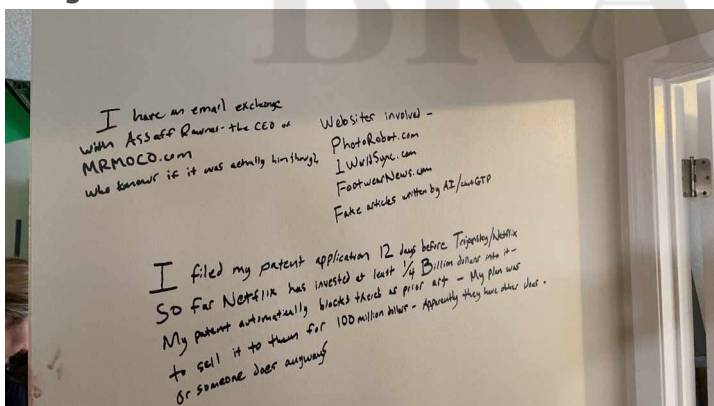 BRA
I have an email exchange
with Assaff Rawner - the CEO of
MRMOCO.com
who knows if it was actually him though,
Websites involved -
PhotoRobot.com
1WorldSync.com
FootwearNews.com
Fake articles written by AI/chatGTP
I filed my patent application 12 days before Tripersky/Netflix
So far Netflix has invested at least 1/4 Billion dollars into it -
My patent automatically blocks theirs as prior art - My plan was
to sell it to them for 100 million dollars - Apparently they have other ideas.
Or someone does anyways